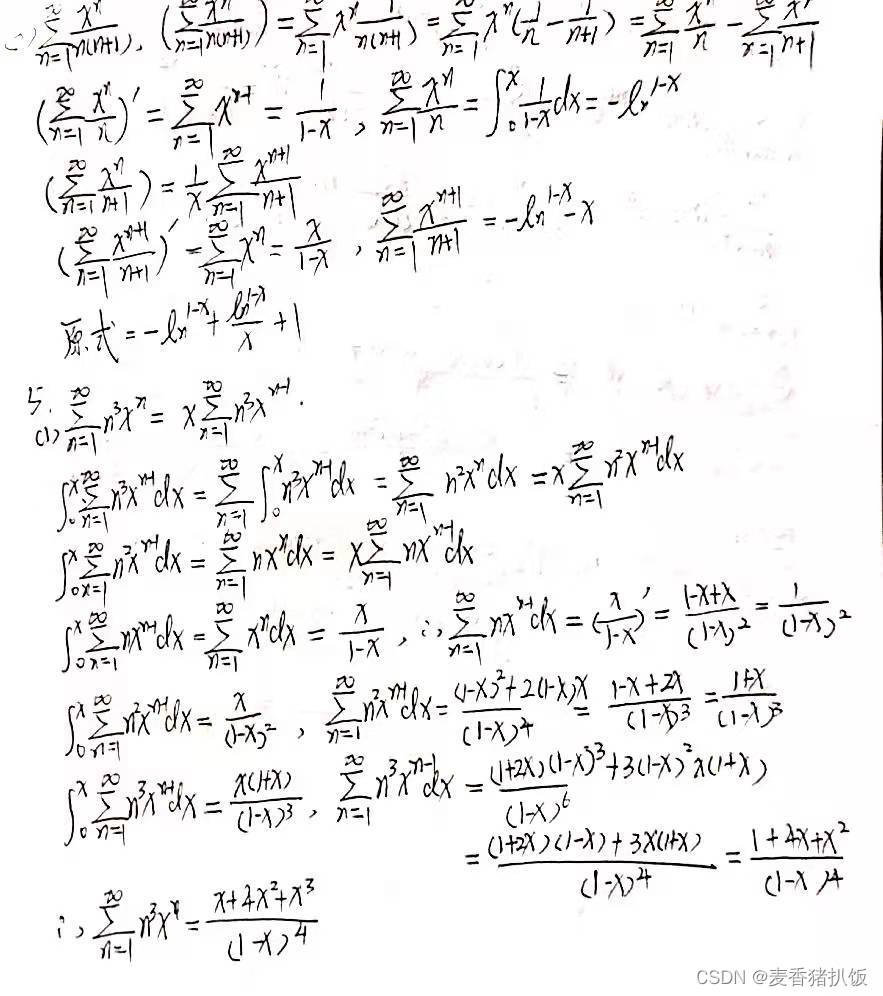 (2) $\sum_{n=1}^{\infty}\frac{x^n}{n(n+1)}$, $(\sum_{n=1}^{\infty}\frac{x^n}{n(n+1)})=\sum_{n=1}^{\infty}x^n\frac{1}{n(n+1)}=\sum_{n=1}^{\infty}x^n(\frac{1}{n}-\frac{1}{n+1})=\sum_{n=1}^{\infty}\frac{x^n}{n}-\sum_{n=1}^{\infty}\frac{x^n}{n+1}$
$(\sum_{n=1}^{\infty}\frac{x^n}{n})'=\sum_{n=1}^{\infty}x^{n-1}=\frac{1}{1-x}$, $\sum_{n=1}^{\infty}\frac{x^n}{n}=\int_0^x\frac{1}{1-x}dx=-\ln^{1-x}$
$(\sum_{n=1}^{\infty}\frac{x^n}{n+1})=\frac{1}{x}\sum_{n=1}^{\infty}\frac{x^{n+1}}{n+1}$
$(\sum_{n=1}^{\infty}\frac{x^{n+1}}{n+1})'=\sum_{n=1}^{\infty}x^n=\frac{x}{1-x}$, $\sum_{n=1}^{\infty}\frac{x^{n+1}}{n+1}=-\ln^{1-x}-x$
原式$=-\ln^{1-x}+\frac{\ln^{1-x}}{x}+1$
5.
(1) $\sum_{n=1}^{\infty}n^3x^n=x\sum_{n=1}^{\infty}n^3x^{n-1}$.
$\int_0^x\sum_{n=1}^{\infty}n^3x^{n-1}dx=\sum_{n=1}^{\infty}\int_0^x n^3x^{n-1}dx=\sum_{n=1}^{\infty}n^2x^ndx=x\sum_{n=1}^{\infty}n^2x^{n-1}dx$
$\int_0^x\sum_{n=1}^{\infty}n^2x^{n-1}dx=\sum_{n=1}^{\infty}nx^ndx=x\sum_{n=1}^{\infty}nx^{n-1}dx$
$\int_0^x\sum_{n=1}^{\infty}nx^{n-1}dx=\sum_{n=1}^{\infty}x^ndx=\frac{x}{1-x}$, ∴ $\sum_{n=1}^{\infty}nx^{n-1}dx=(\frac{x}{1-x})'=\frac{1-x+x}{(1-x)^2}=\frac{1}{(1-x)^2}$
$\int_0^x\sum_{n=1}^{\infty}n^2x^{n-1}dx=\frac{x}{(1-x)^2}$, $\sum_{n=1}^{\infty}n^2x^{n-1}dx=\frac{(1-x)^2+2(1-x)x}{(1-x)^4}=\frac{1-x+2x}{(1-x)^3}=\frac{1+x}{(1-x)^3}$
$\int_0^x\sum_{n=1}^{\infty}n^3x^{n-1}dx=\frac{x(1+x)}{(1-x)^3}$, $\sum_{n=1}^{\infty}n^3x^{n-1}dx=\frac{(1+2x)(1-x)^3+3(1-x)^2x(1+x)}{(1-x)^6}$
$=\frac{(1+2x)(1-x)+3x(1+x)}{(1-x)^4}=\frac{1+4x+x^2}{(1-x)^4}$
∴ $\sum_{n=1}^{\infty}n^3x^n=\frac{x+4x^2+x^3}{(1-x)^4}$
CSDN @麦香猪扒饭